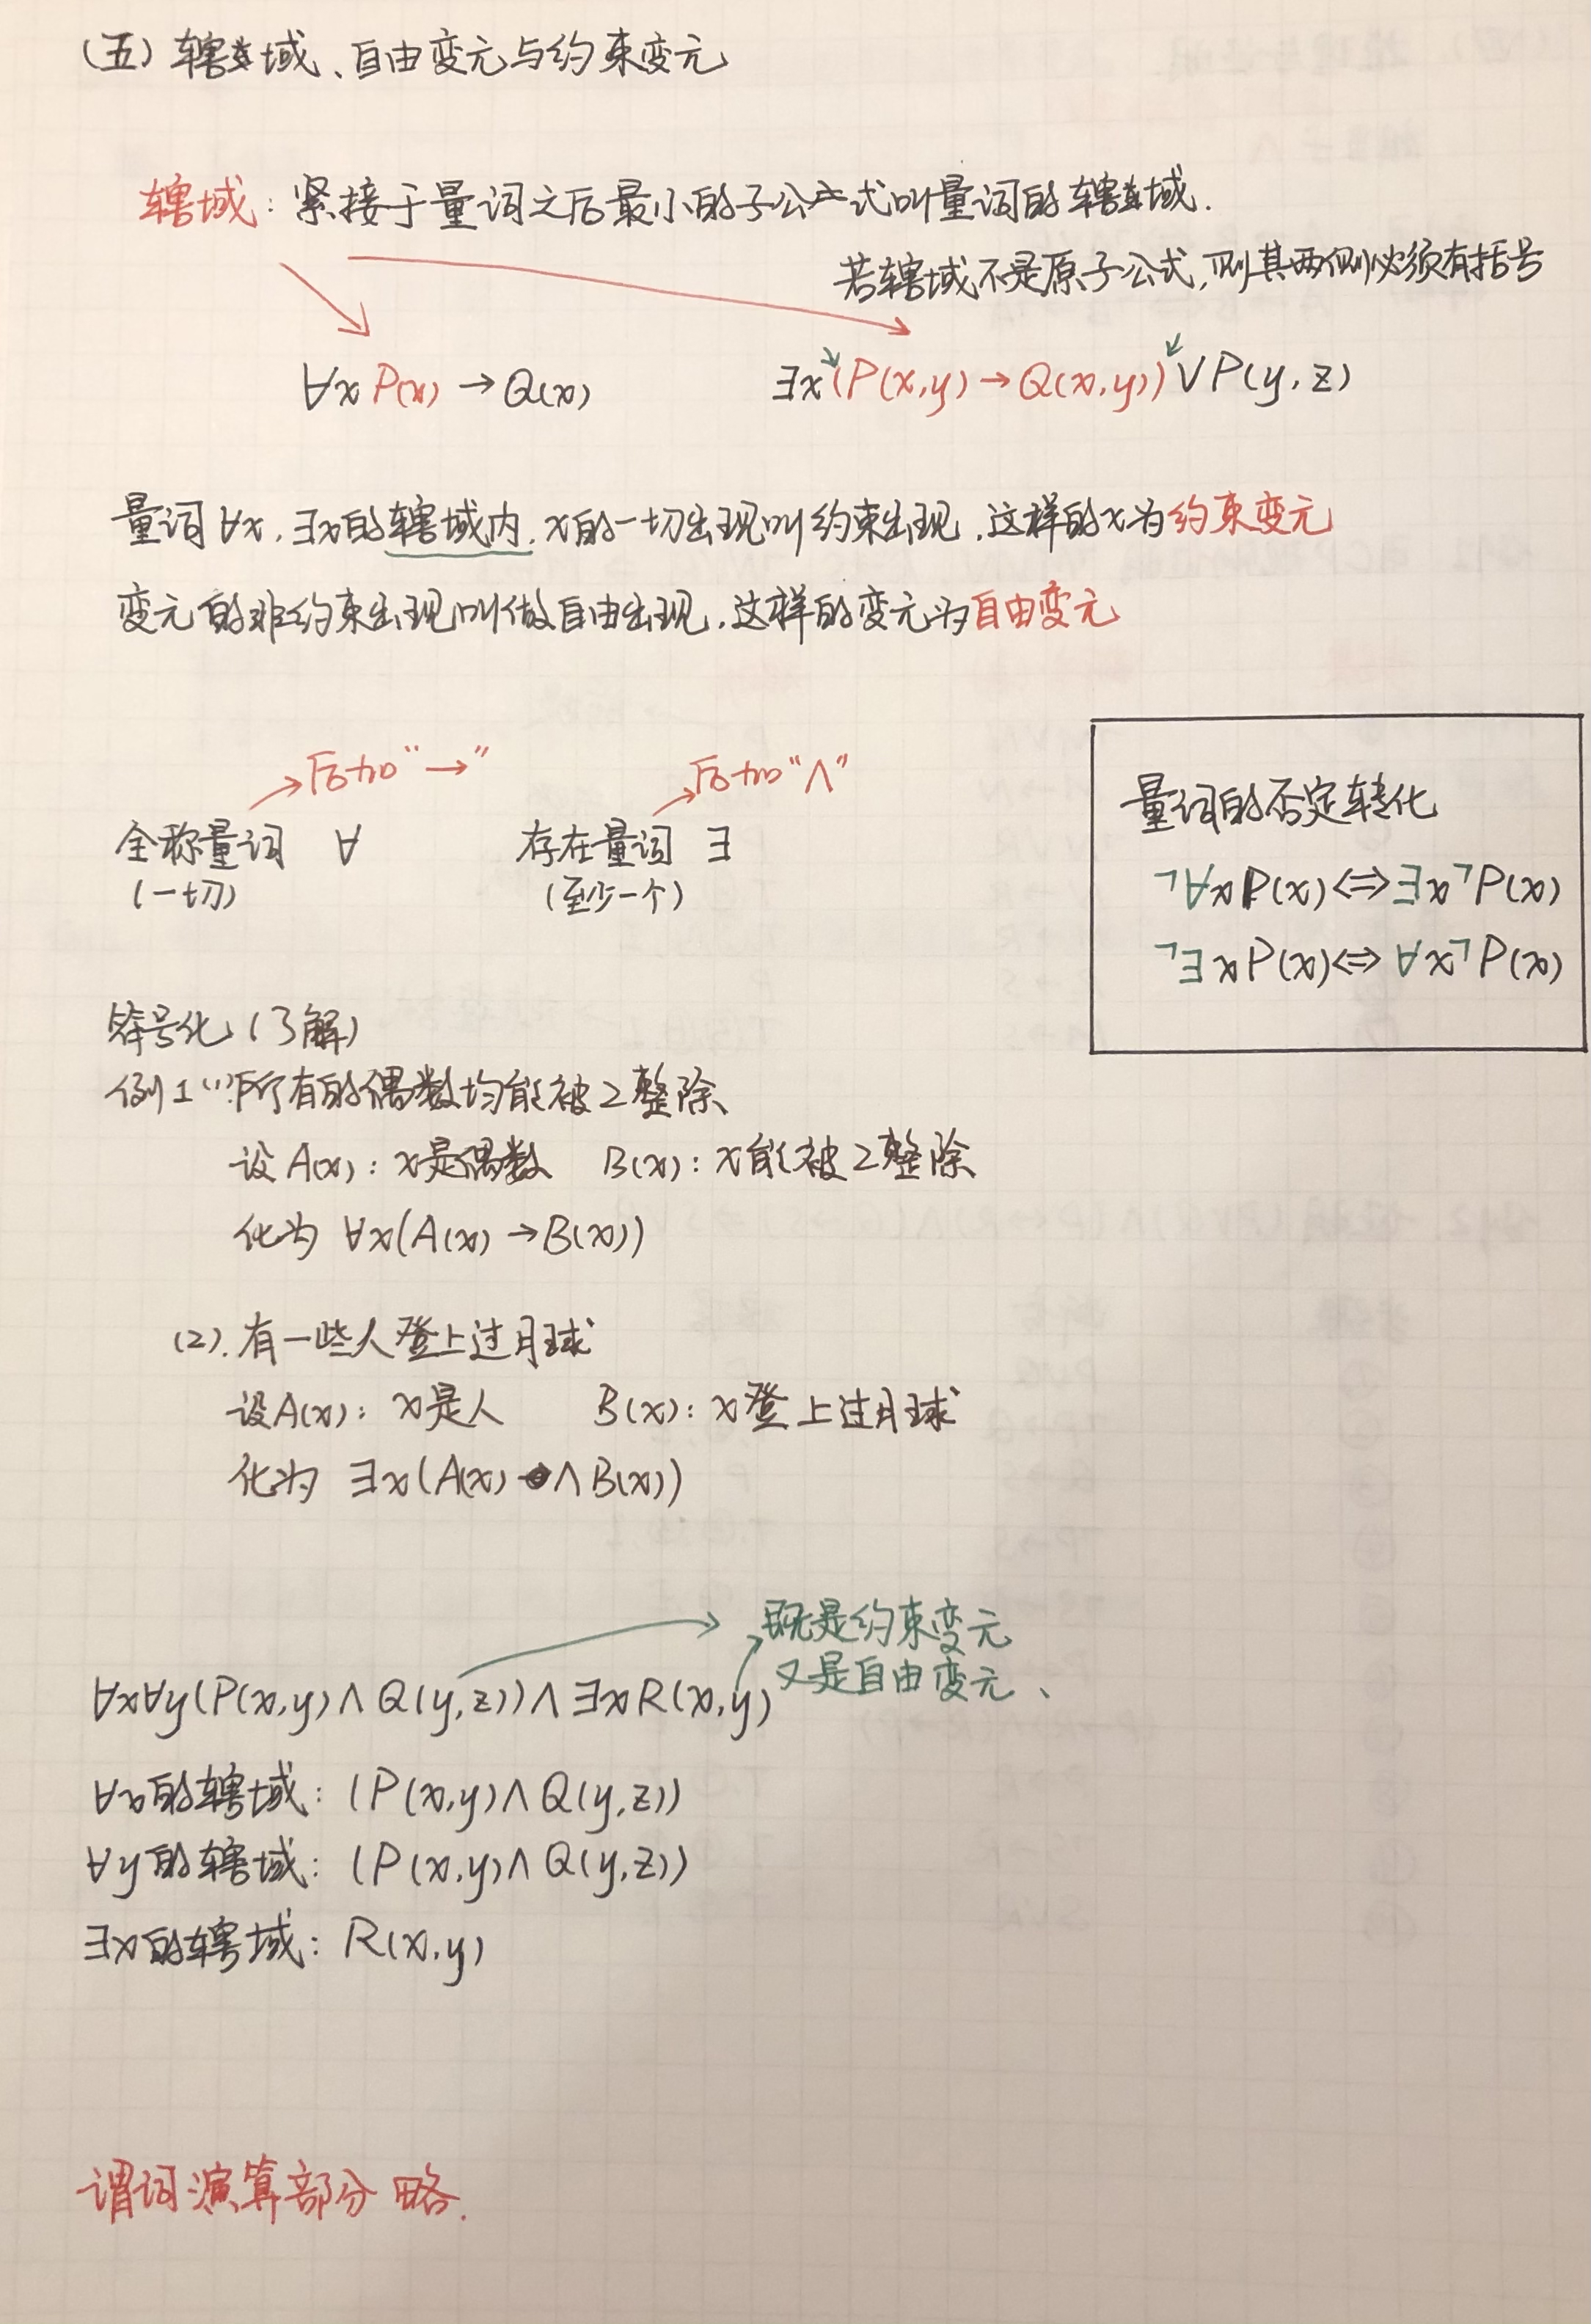 (五) 辖域、自由变元与约束变元
辖域：紧接于量词之后最小的子公式叫量词的辖域.
若辖域不是原子公式,则其两侧必须有括号
∀x P(x) → Q(x)
∃x (P(x,y) → Q(x,y)) ∨ P(y,z)
量词∀x,∃x的辖域内,x的一切出现叫约束出现,这样的x为约束变元
变元的非约束出现叫做自由出现,这样的变元为自由变元
后加“→”
后加“∧”
全称量词 ∀
(一切)
存在量词 ∃
(至少一个)
量词的否定转化
¬∀xP(x)⇔∃x¬P(x)
¬∃xP(x)⇔∀x¬P(x)
符号化(了解)
例1 (1)所有的偶数均能被2整除
设A(x): x是偶数 B(x): x能被2整除
化为 ∀x(A(x)→B(x))
(2). 有一些人登上过月球
设A(x): x是人 B(x): x登上过月球
化为 ∃x(A(x)∧B(x))
既是约束变元
又是自由变元、
∀x∀y(P(x,y)∧Q(y,z))∧∃xR(x,y)
∀x的辖域: (P(x,y)∧Q(y,z))
∀y的辖域: (P(x,y)∧Q(y,z))
∃x的辖域: R(x,y)
谓词演算部分 略.